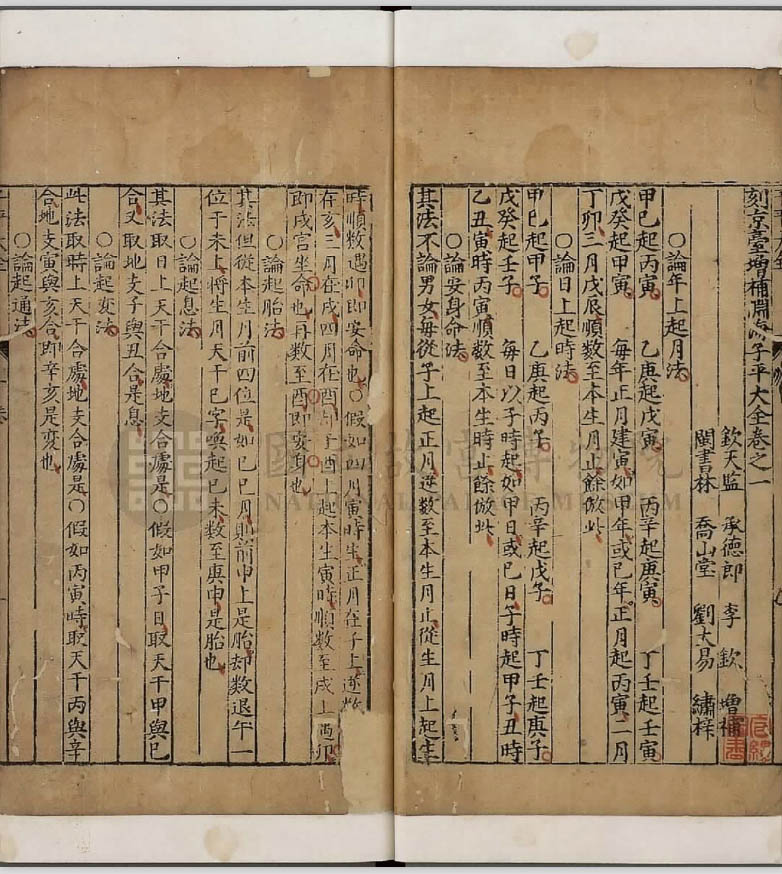 刻京臺增補淵海子平大全卷之一
欽天監 承德郎 李欽 增補
閩書林 喬山堂 劉大易 繡梓
○論年上起月法
甲己起丙寅 乙庚起戊寅 丙辛起庚寅 丁壬起壬寅
戊癸起甲寅 每年正月建寅如甲年或己年正月起丙寅二月
丁卯三月戊辰順數至本生月止餘倣此
○論日上起時法
甲己起甲子 乙庚起丙子 丙辛起戊子 丁壬起庚子
戊癸起壬子 每日以子時起如甲日或己日子時起甲子丑時
乙丑寅時丙寅順數至本生時止餘倣此
○論安身命法
其法不論男女每從子上起正月逆數至本生月止從生月上起生
時順數遇卯即安命也○假如四月寅時生正月在子上逆數
在亥三月在戌四月在酉即于酉上起本生寅時順數至戌上卯
即戌宮坐命也再數至酉即安身也
○論起胎法
其法但從本生月前四位是如己巳月則前申上是胎却數退午一
位于未上將生月天干己字與起己未數至庚申是胎也
○論起息法
其法取日上天干合處地支合處是○假如甲子日取天干甲與己
合又取地支子與丑合是息
○論起変法
此法取時上天干合處地支合處是○假如丙寅時取天干丙與辛
合地支寅與亥合即辛亥是変也
○論起通法
子平大全 一卷 一
國立故宮博物院
NATIONAL PALACE MUSEUM